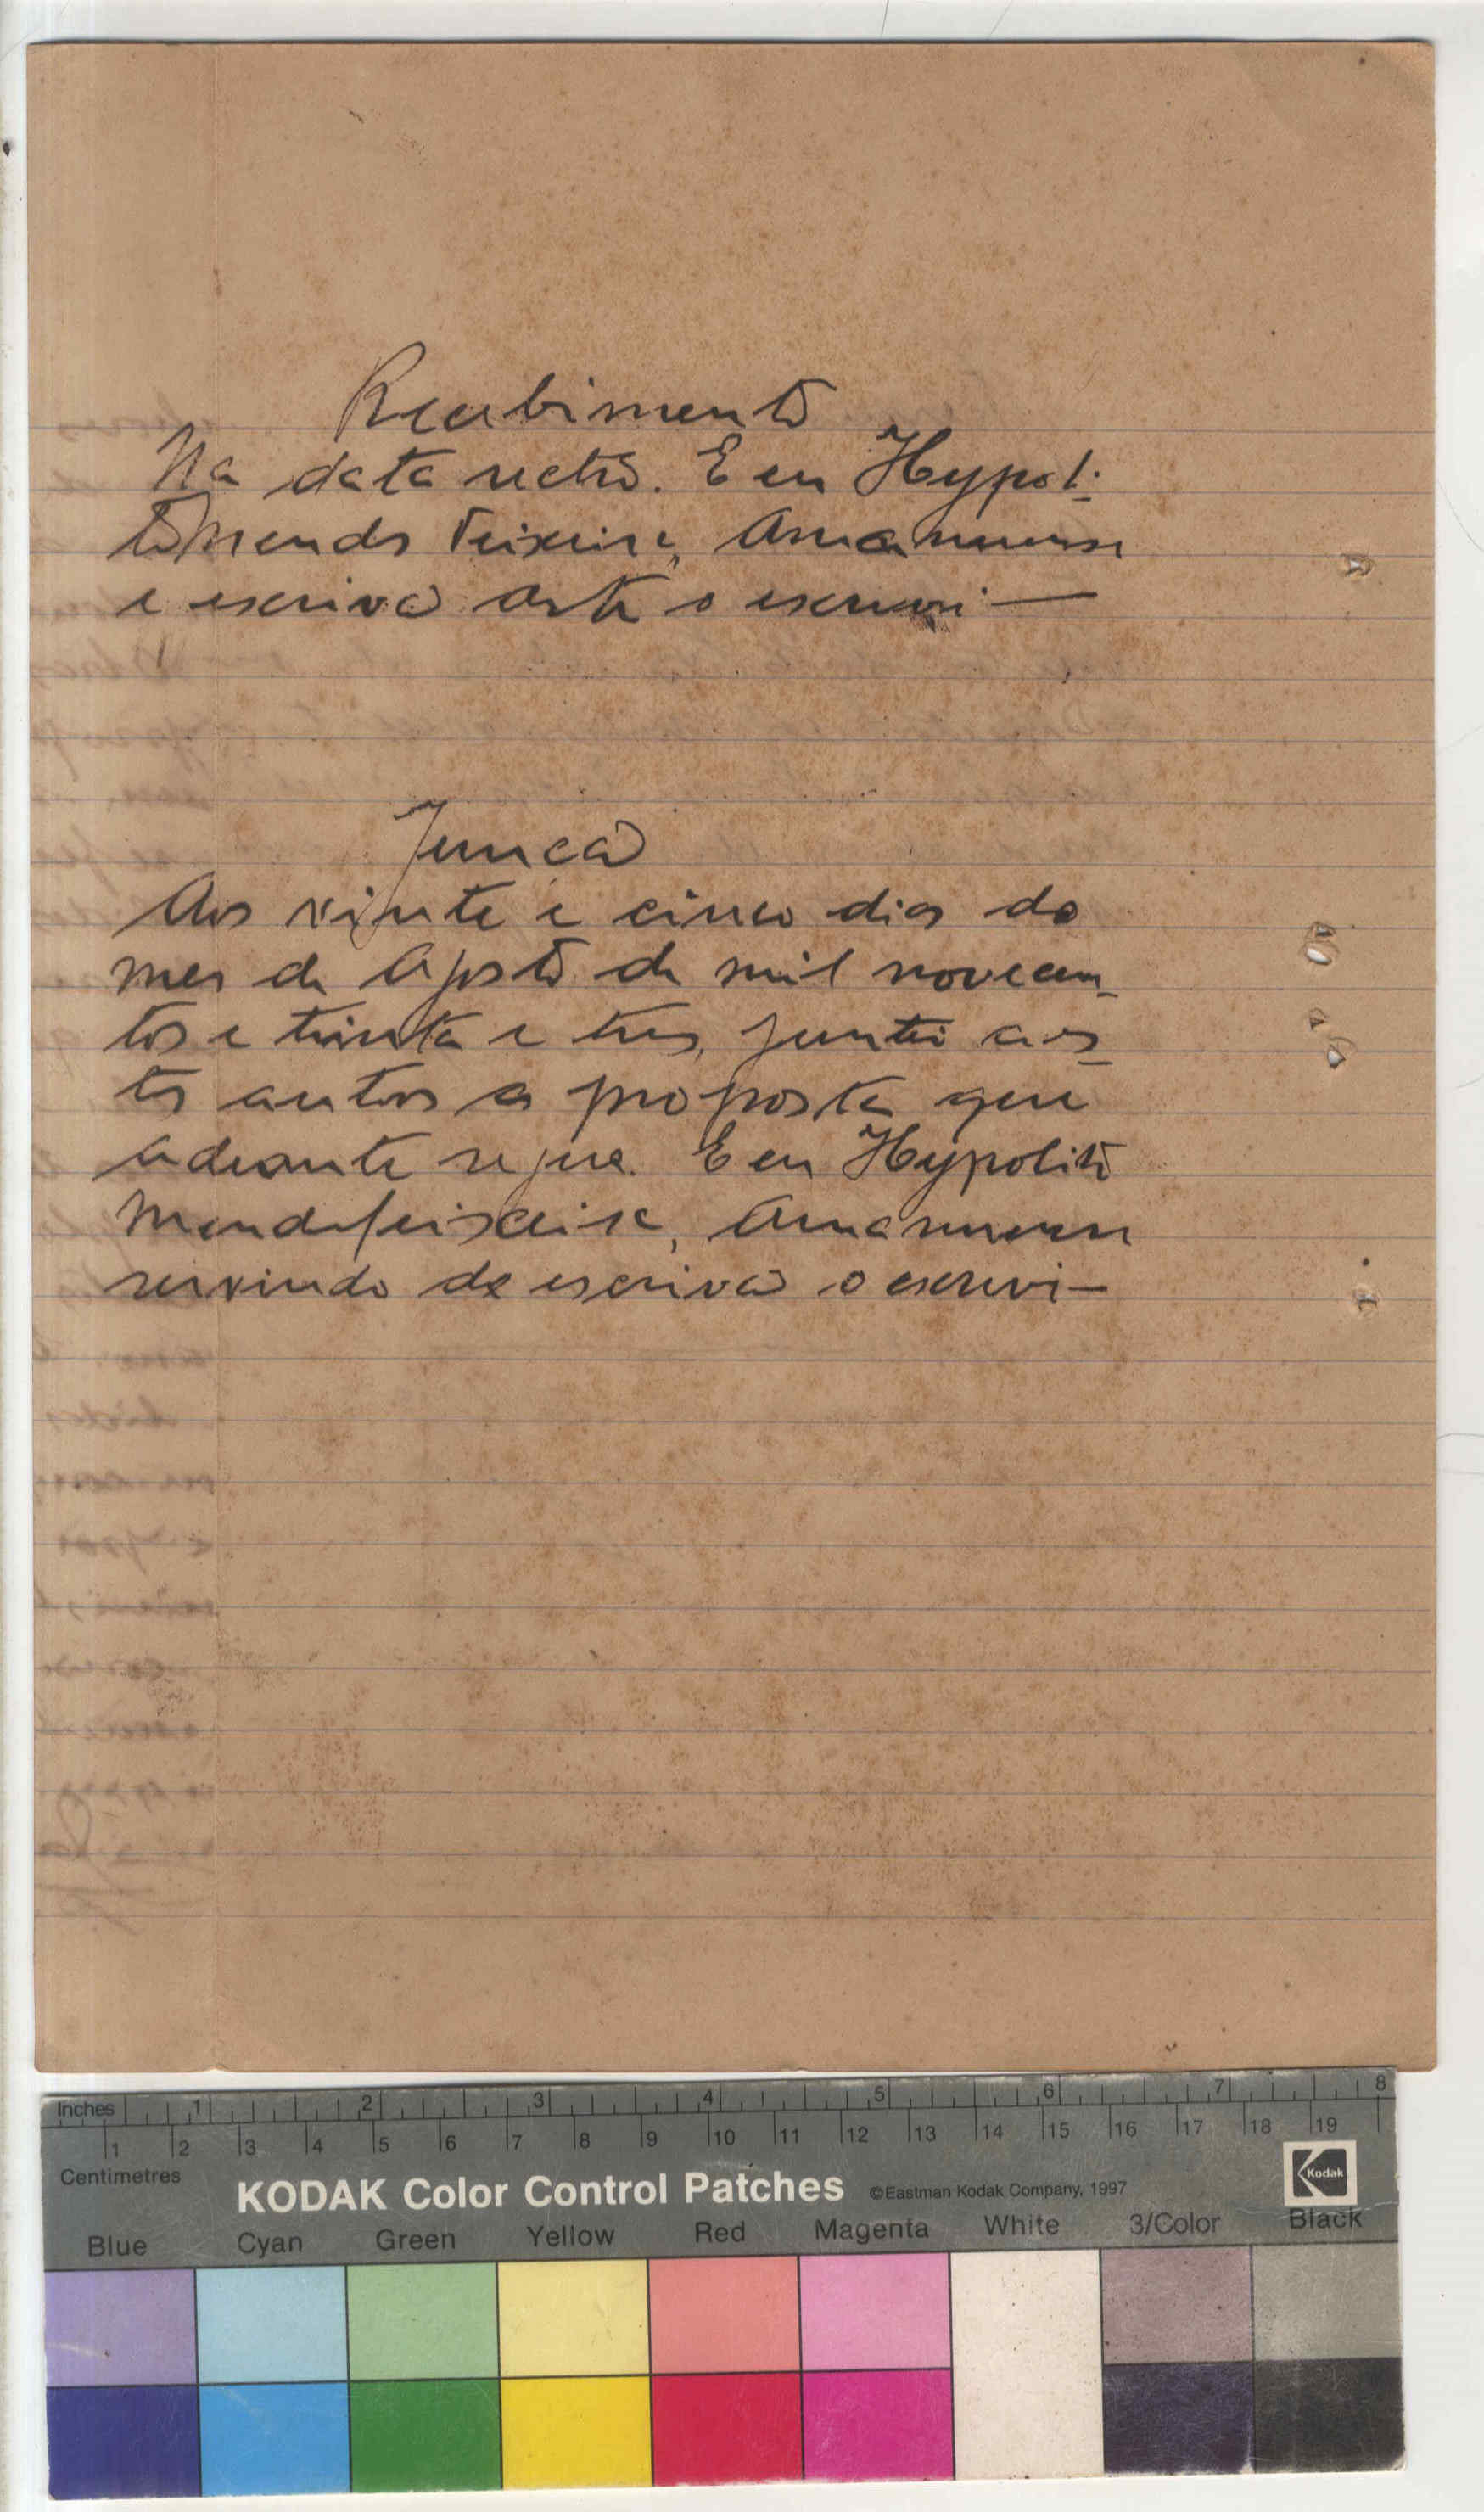 Recebimento
Na data retro. E eu Hypoli-
to Mendes Teixeira, Amanuense
e escrivão o escrevi —
Junção
Aos vinte e cinco dias do
mes de Agosto de mil novecen-
tos e trinta e tres, juntei a es-
tes autos a proposta que
adeante segue. E eu Hypolito
Mendes Teixeira, Amanuense
servindo de escrivão o escrevi —
Inches 1 2 3 4 5 6 7 8
1 2 3 4 5 6 7 8 9 10 11 12 13 14 15 16 17 18 19
Centimetres
KODAK Color Control Patches ©Eastman Kodak Company, 1997 Kodak
Blue Cyan Green Yellow Red Magenta White 3/Color Black